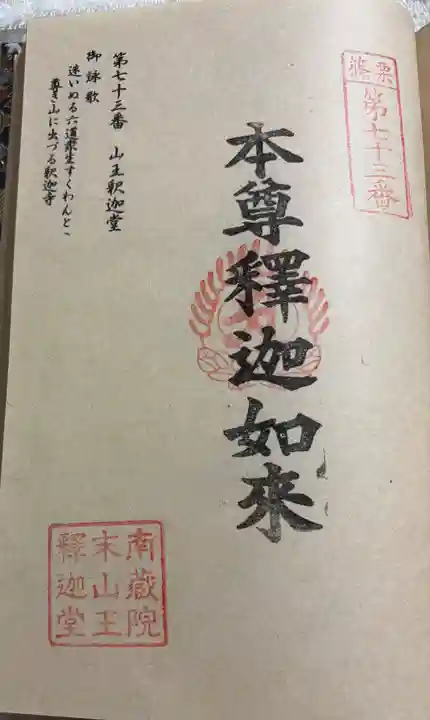 篠栗
第七十三番
本尊釋迦如來
第七十三番　山王釈迦堂
御詠歌
迷いぬる六道衆生すくわんと
尊き山に出づる釈迦寺
南嶽院
末山王
釋迦堂